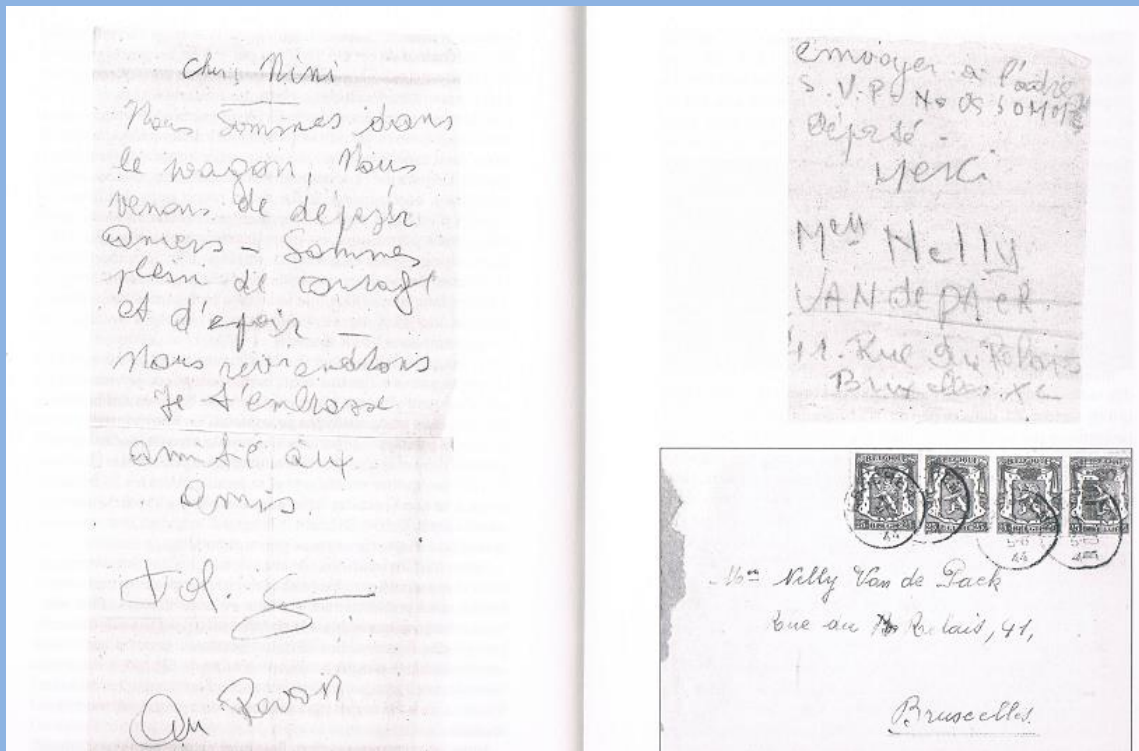 cher Nini
Nous sommes dans
le wagon, Nous
venons de dépasser
Anvers - Sommes
plein de courage
et d'epoir -
Nous reviendrons
Je t'embrasse
amitié aux
amis
Au Revoir
envoyer a l'adre
S.V.P. NOUS SOMME
Déprté -
Merci
Mell Nelly
VAN de PAER
41. Rue du Relais
Bruxelles. XL
BELGIQUE BELGIQUE BELGIQUE
25 BELGIE 25
44 44
Nelly Van de Paek
Rue au Relais, 41,
Bruxelles.